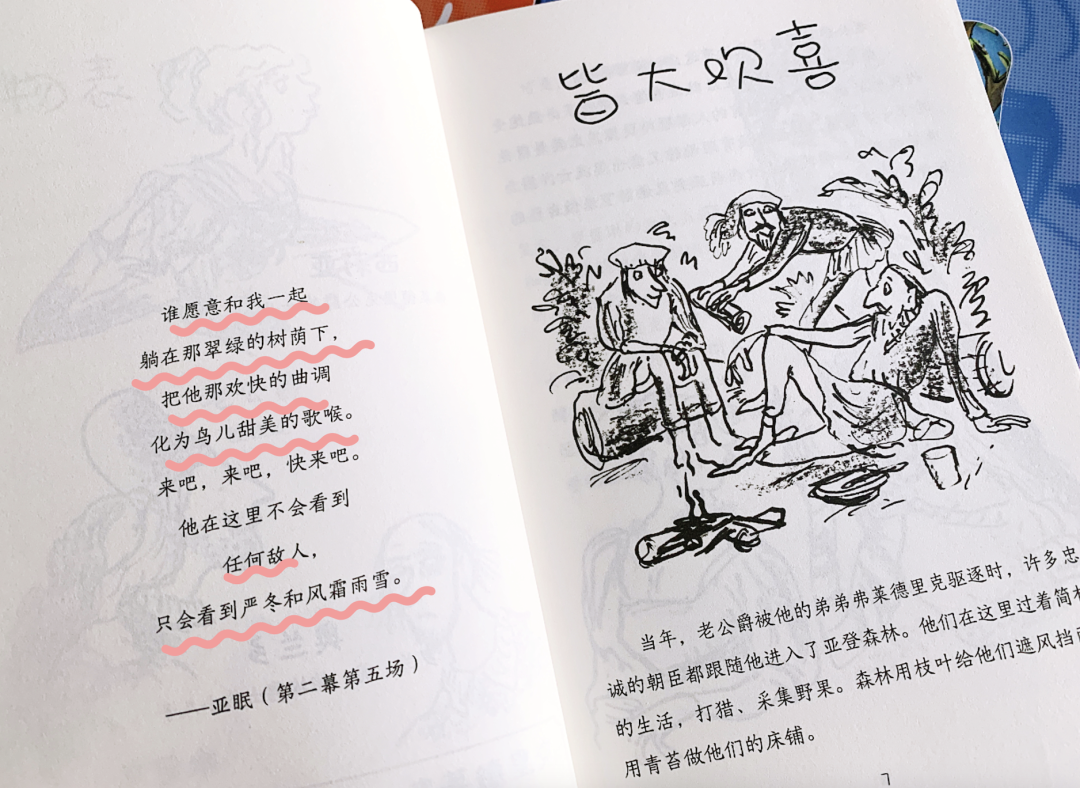 谁愿意和我一起
躺在那翠绿的树荫下，
把他那欢快的曲调
化为鸟儿甜美的歌喉。
来吧，来吧，快来吧。
他在这里不会看到
任何敌人，
只会看到严冬和风霜雨雪。
——亚眠（第二幕第五场）
皆大欢喜
当年，老公爵被他的弟弟弗莱德里克驱逐时，许多忠
诚的朝臣都跟随他进入了亚登森林。他们在这里过着简朴
的生活，打猎、采集野果。森林用枝叶给他们遮风挡
用青苔做他们的床铺。
7